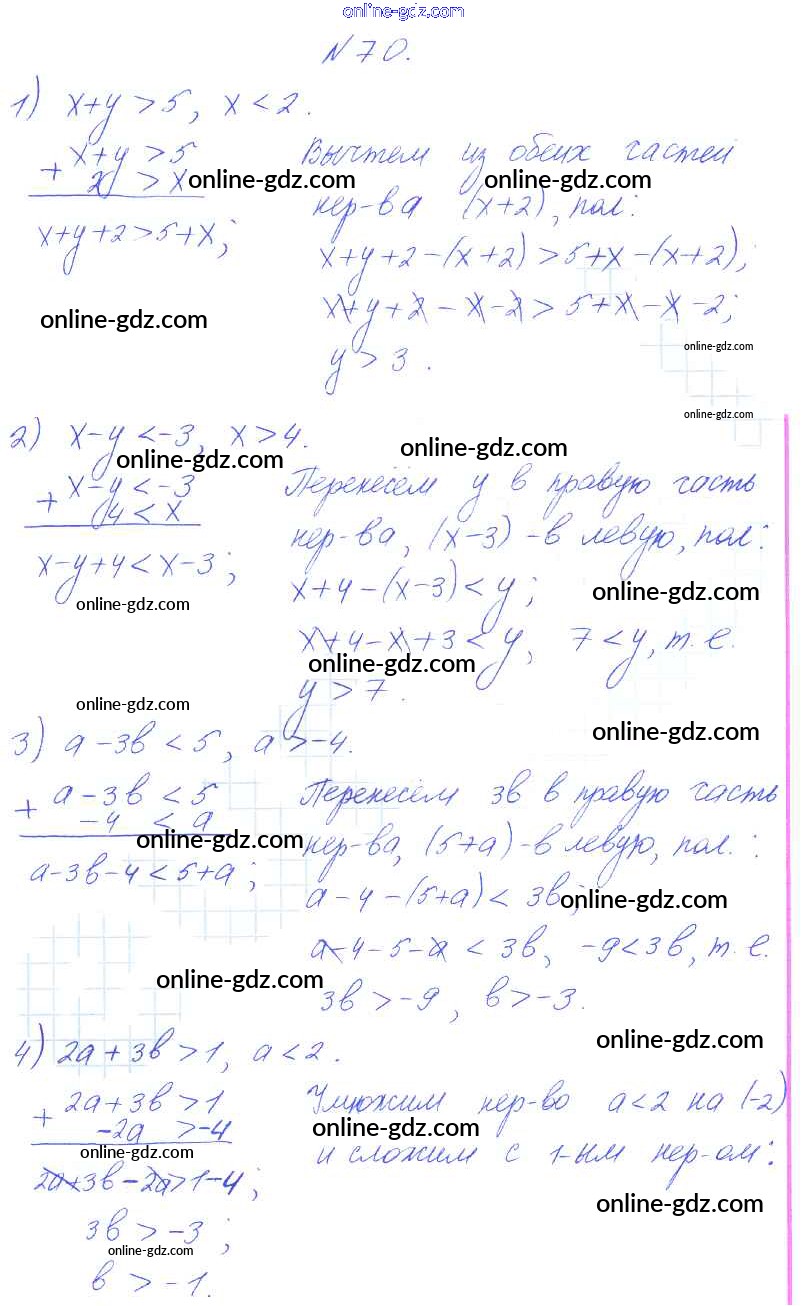 online-gdz.com
N 70.
1) x+y>5, x<2.
x+y>5
+ 2 > x
x+y+2>5+x;
Вычтем из обеих частей
нер-ва (x+2), пол:
x+y+2-(x+2)>5+x-(x+2);
x+y+2-x-2>5+x-x-2;
y>3.
online-gdz.com
online-gdz.com
online-gdz.com
online-gdz.com
online-gdz.com
2) x-y<-3, x>4.
x-y<-3
+ 4<x
x-y+4<x-3;
Перенесём y в правую часть
нер-ва, (x-3) - в левую, пол:
x+4-(x-3)<y;
x+4-x+3<y, 7<y, т.е.
y>7.
online-gdz.com
online-gdz.com
online-gdz.com
online-gdz.com
online-gdz.com
online-gdz.com
online-gdz.com
3) a-3b<5, a>-4.
a-3b<5
+ -4 < a
a-3b-4<5+a;
Перенесём 3b в правую часть
нер-ва, (5+a) - в левую, пол.:
a-4-(5+a)<3b;
a-4-5-a<3b, -9<3b, т.е.
3b>-9, b>-3.
online-gdz.com
online-gdz.com
online-gdz.com
online-gdz.com
4) 2a+3b>1, a<2.
2a+3b>1
+ -2a >-4
2a+3b-2a>1-4;
3b>-3;
b>-1.
Умножим нер-во a<2 на (-2)
и сложим с 1-ым нер-ом:
online-gdz.com
online-gdz.com
online-gdz.com
online-gdz.com